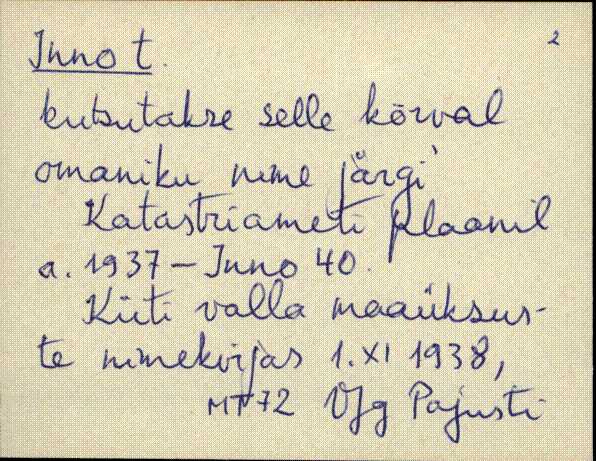 2
Inno t.
kutsutakse selle kõrval
omaniku nime järgi
Katastriameti plaanil
a. 1937 – Inno 40.
Küti valla maaüksus-
te nimekirjas 1. XI 1938,
MT 72 Vjg Pajusti